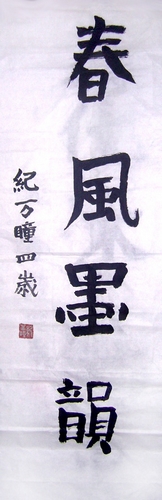 春風墨韻
紀万瞳四歳